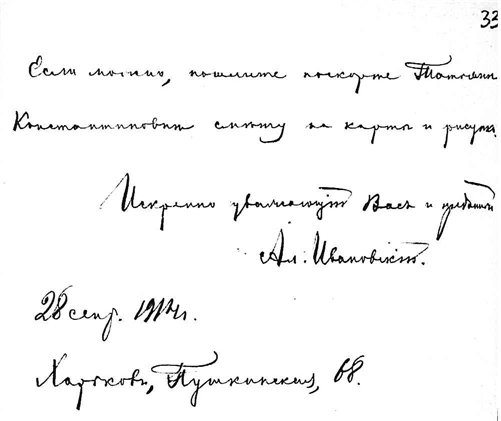 33
Если можно, пошлите поскорѣе
Константиновичу смѣту на карты и
Искренно уважающій Васъ и преданный
Ал. Ивановскій.
28 сент. 1914 г.
Харьковъ, Пушкинская, 68.